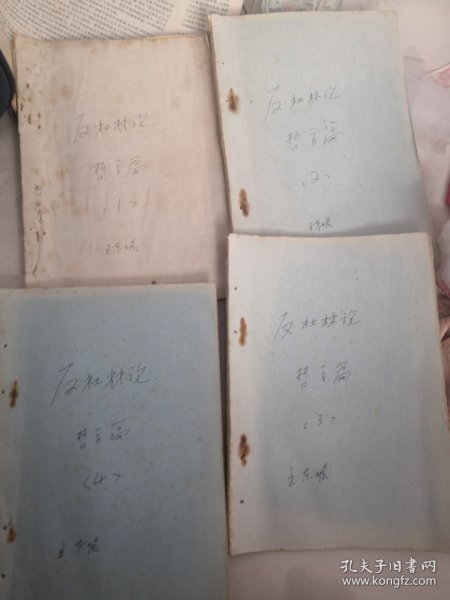 反杜林论
哲学篇
<1>
王东
反杜林论
哲学篇
<2>
王东
反杜林论
哲学篇
<4>
王东
反杜林论
哲学篇
<3>
王东
孔夫子旧书网
www.kongfz.com